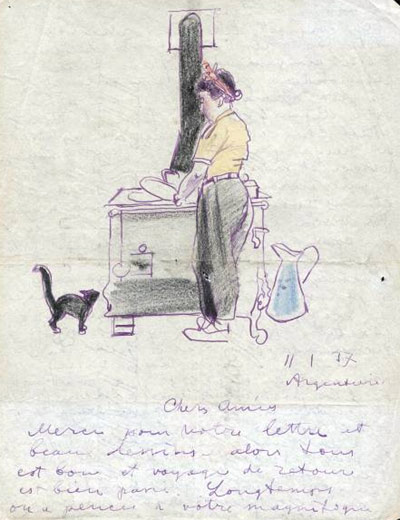 11 1 37
Argentière
Chers Amies
Merci pour votre lettre et
beaux dessins. alors tous
est bon et voyage de retour
est bien passé. Longtemps
on a pensés à votre magnifique